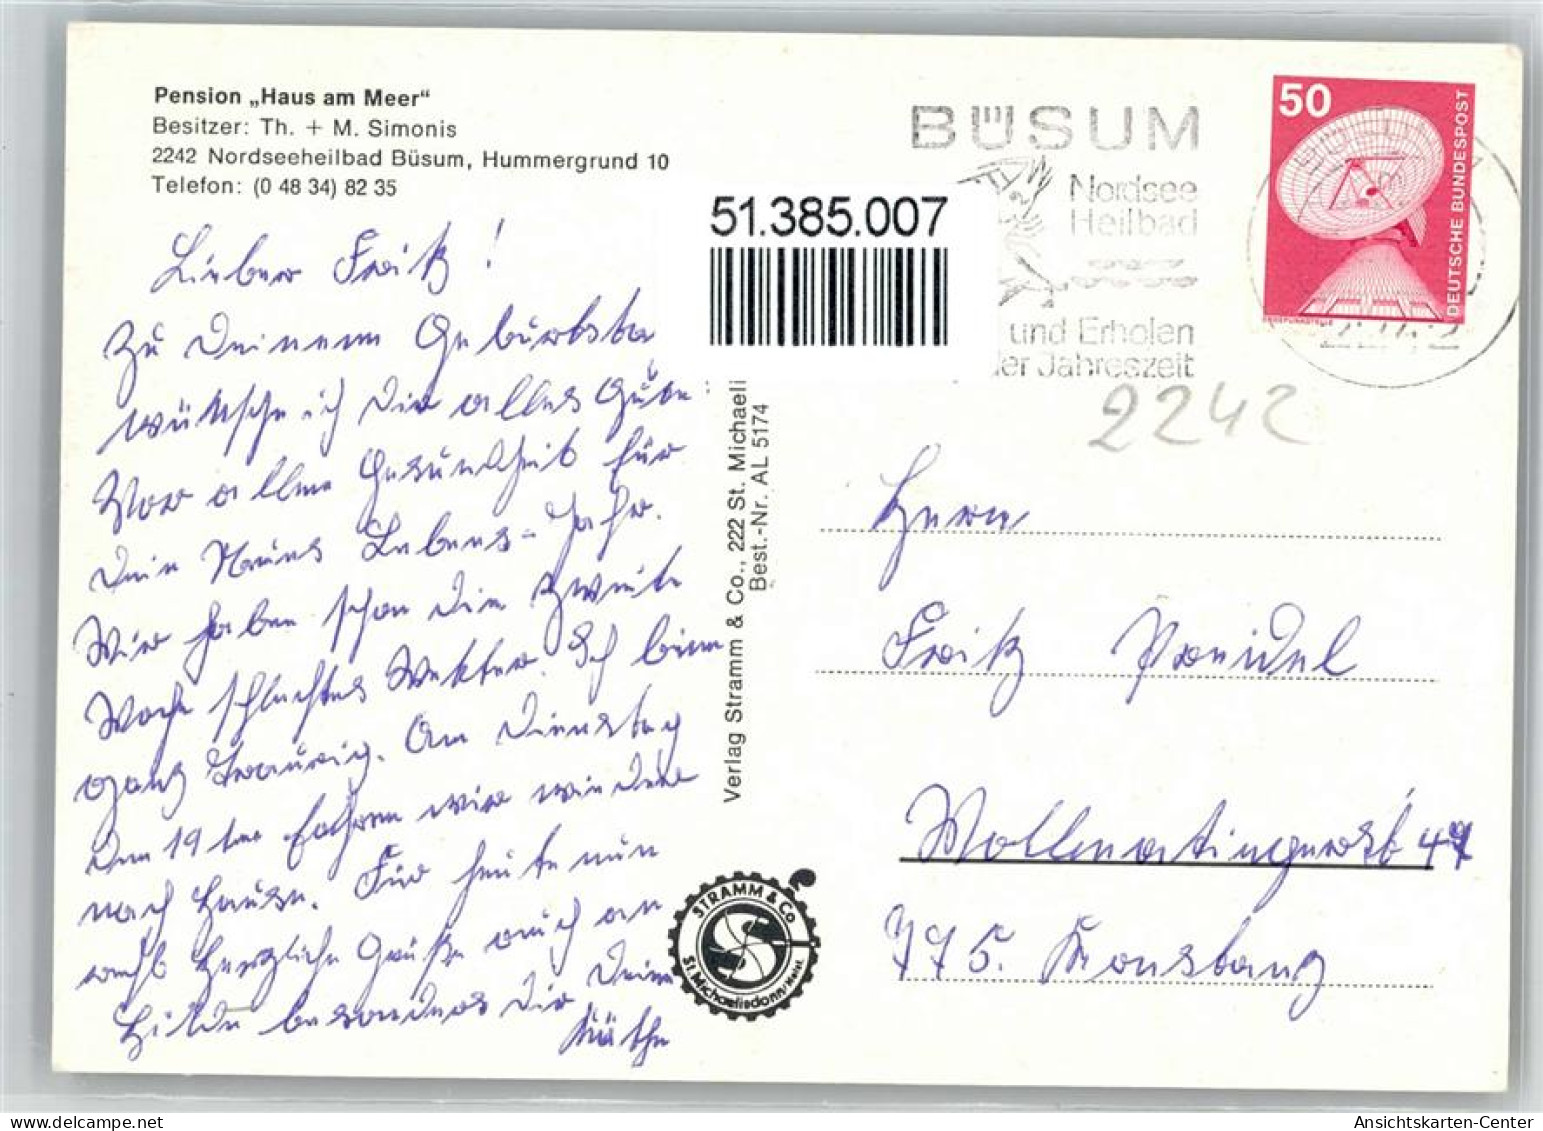 Pension „Haus am Meer“
Besitzer: Th. + M. Simonis
2242 Nordseeheilbad Büsum, Hummergrund 10
Telefon: (0 48 34) 82 35
Lieber Fritz!
Zu Deinem Geburtsta
wünsche ich Dir alles Gute.
Vor allem Gesundheit für
Dein Neues Lebens-Jahr.
Wir haben schon die zweite
Woche schlechtes Wetter. Ich bin
ganz traurig. Am Dienstag
den 19ten fahren wir wieder
nach Hause. Für heute nun
recht herzliche Grüße auch an
Hilde besonders Dir Deine
Käthe
Verlag Stramm & Co., 222 St. Michaeli
Best.-Nr. AL 5174
STRAMM & Co
St. Michaelisdonn/Holst.
51.385.007
BÜSUM
Nordsee
Heilbad
und Erholen
der Jahreszeit
50
DEUTSCHE BUNDESPOST
2242
Herrn
Fritz
Wollmatingerstr 47
775. Konstanz
Ansichtskarten-Center